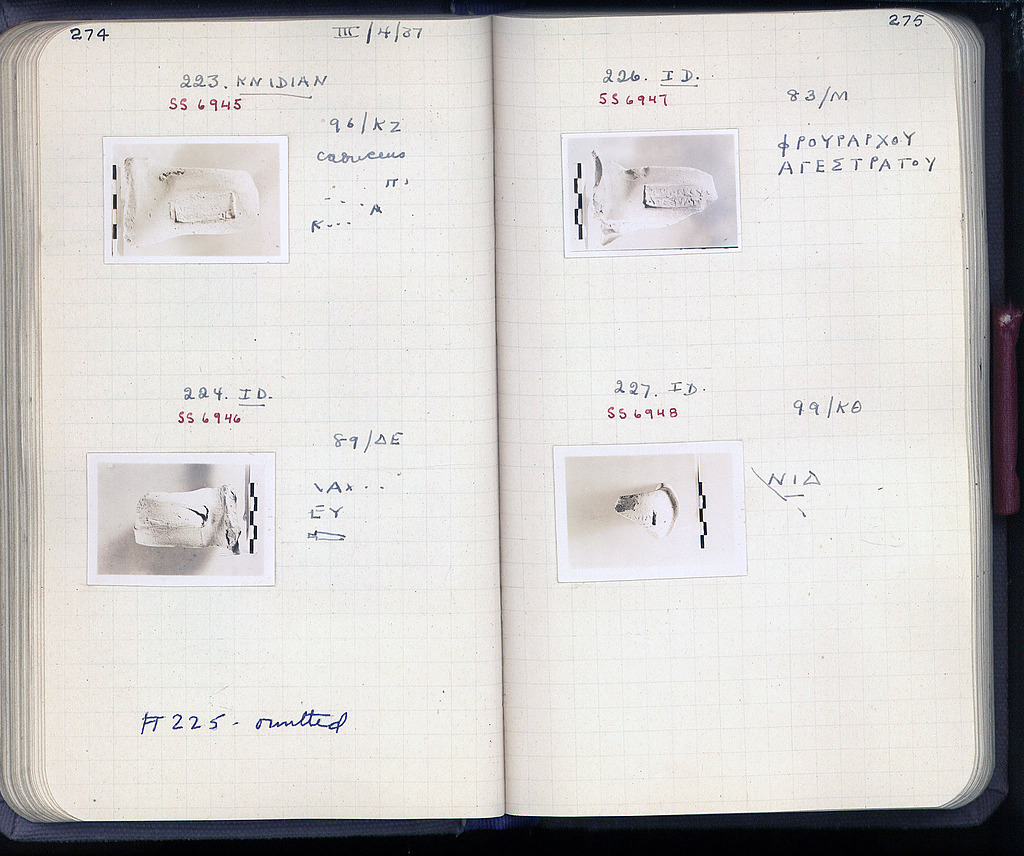 274
III/4/37
223. KNIDIAN
SS 6945
96/KZ
caduceus
. . . Π'
- . . . . A
K - . . .
224. ID.
SS 6946
89/ΔΕ
\AX . .
EY
# 225 - omitted
275
226. ID.
SS 6947
83/M
ΦΡΟΥΡΑΡΧΟΥ
ΑΓΕΣΤΡΑΤΟΥ
227. ID.
SS 6948
99/ΚΘ
ΝΙΔ